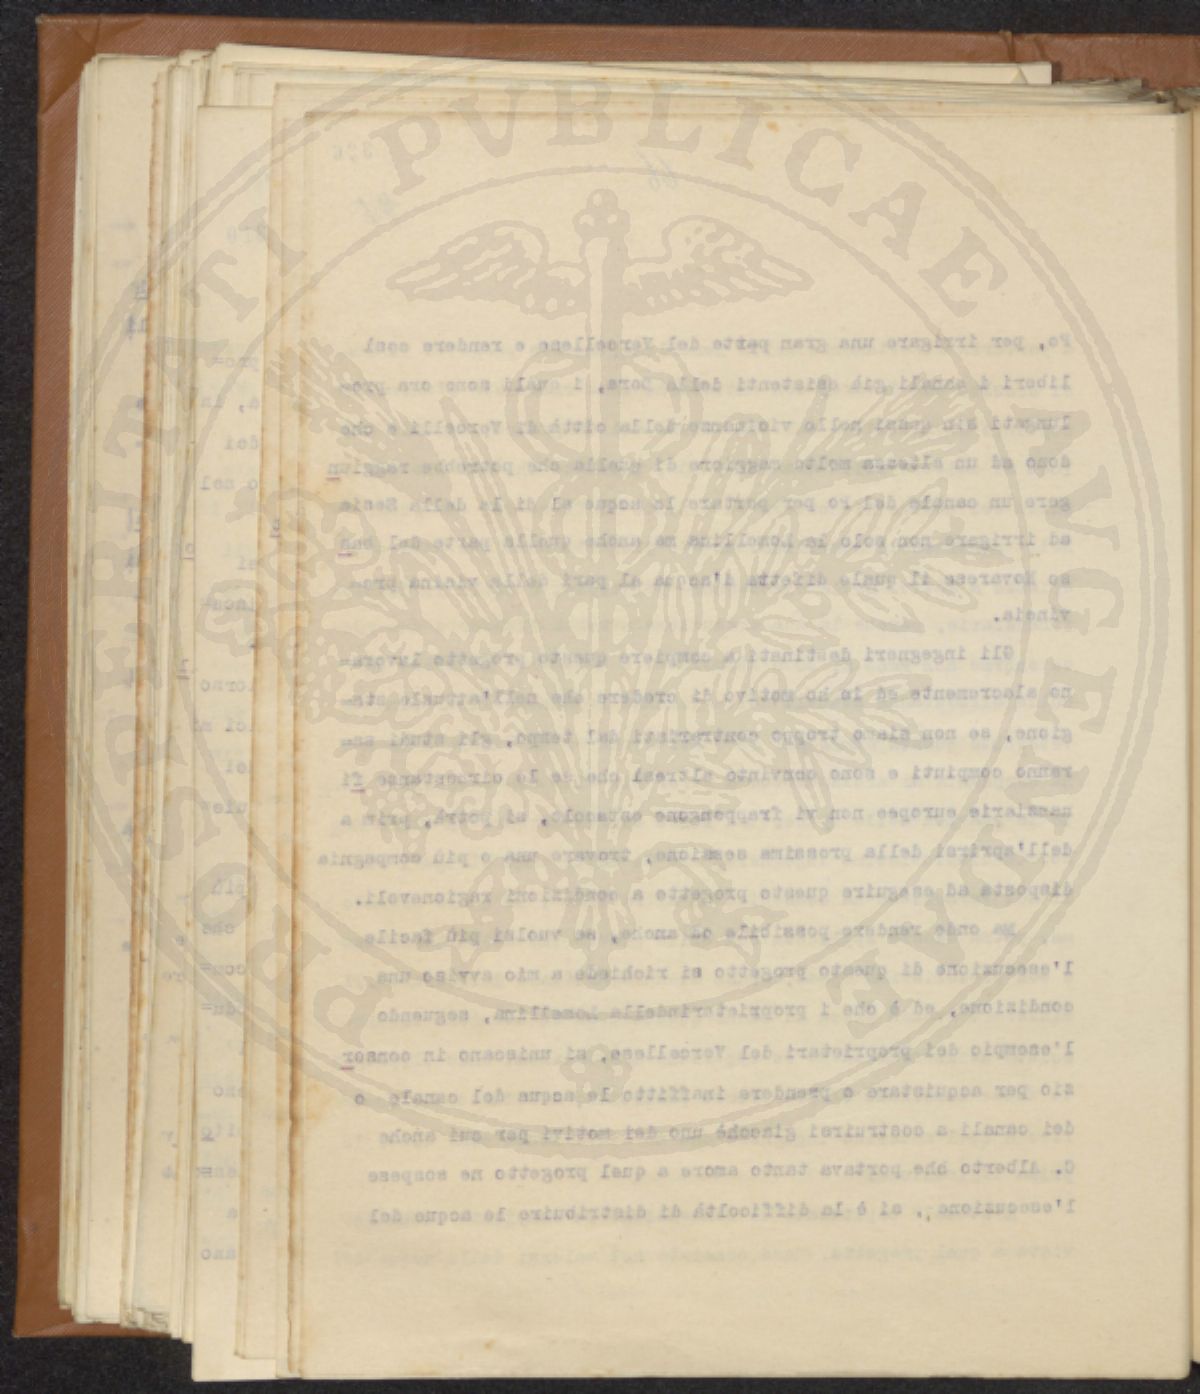 PROSPERITATI PVBLICAE AVGENDAE
Po, per irrigare una gran parte del Vercellese e rendere così
liberi i canali già esistenti della Dora, i quali sono ora pro=
lungati sin quasi nello vicinanze della città di Vercelli e che
dono ad un altezza molto maggiore di quella che potrebbe raggiun
gere un canale del Po per portare le acque al di là della Sesia
ed irrigare non solo la Lomellina ma anche quella parte del bas
so Novarese il quale difetta d'acqua al pari della vicina pro=
vincia.
Gli ingegneri destinati a compiere questo progetto lavora=
no alacremente ed io ho motivo di credere che nell'attuale sta=
gione, se non siamo troppo contrariati dal tempo, gli studi sa=
ranno compiuti e sono convinto altresì che se le circostanze fi
nanziarie europee non vi frappongono ostacolo, si potrà, prim a
dell'aprirsi della prossima sessione, trovare una o più compagnie
disposta ad eseguire questo progetto a condizioni ragionevoli.
Ma onde rendere possibile od anche, se vuolsi più facile
l'esecuzione di questo progetto si richiede a mio avviso una
condizione, ed è che i proprietari della Lomellina, seguendo
l'esempio dei proprietari del Vercellese, si uniscano in consor
zio per acquistare o prendere inaffitto le acque del canale o
dei canali a costruirsi giacchè uno dei motivi per cui anche
C. Alberto che portava tanto amore a quel progetto ne sospese
l'esecuzione, si è la difficoltà di distribuire le acque del